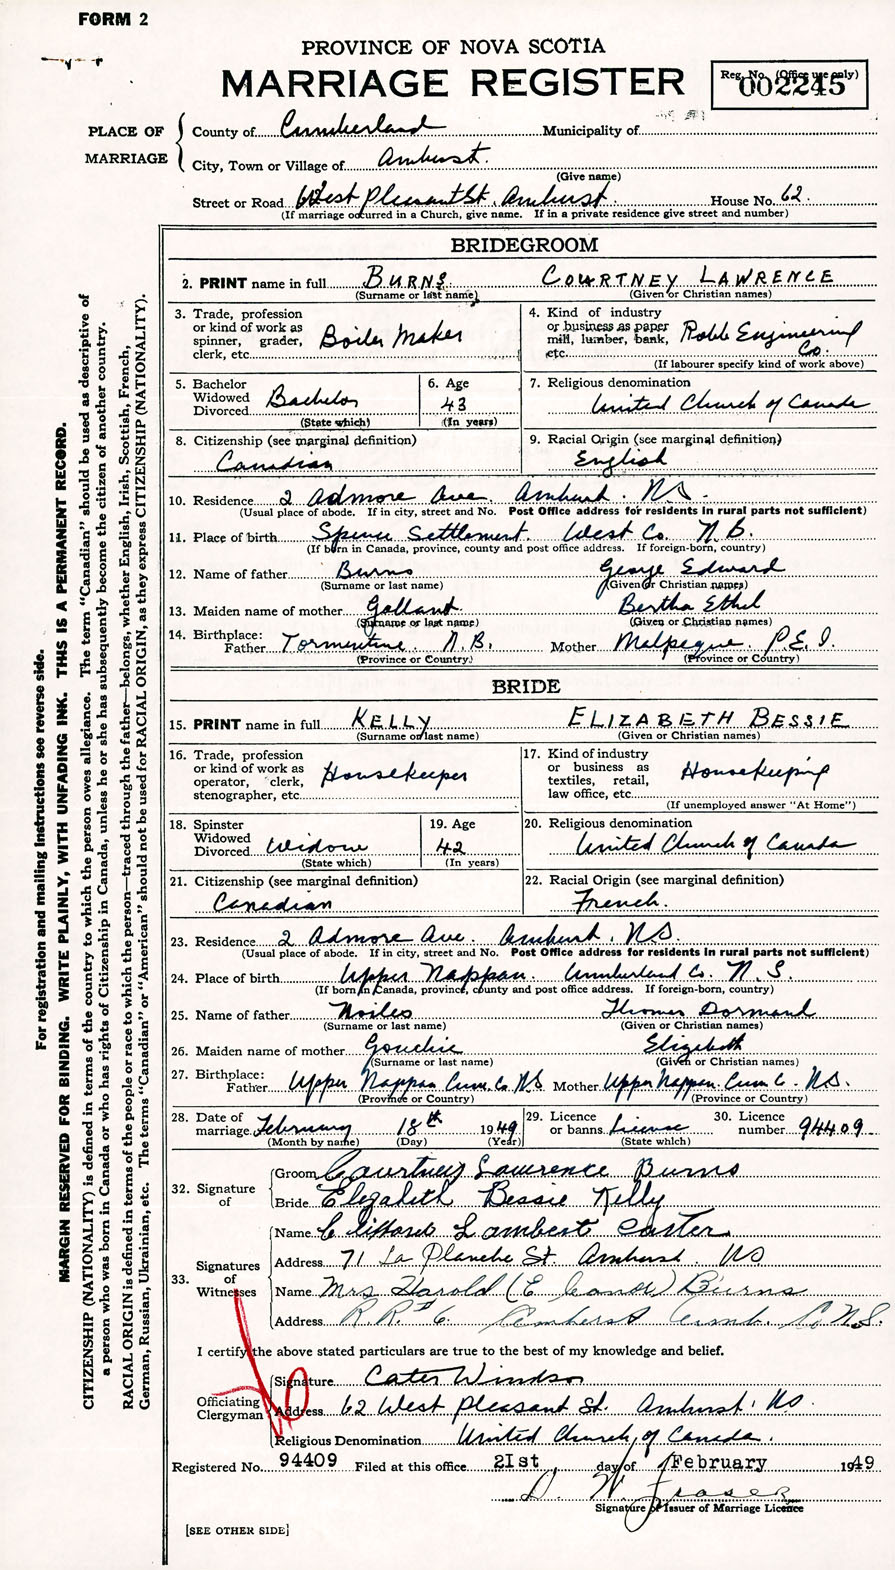 FORM 2
PROVINCE OF NOVA SCOTIA
MARRIAGE REGISTER
Reg. No. (Office use only)
002245
PLACE OF MARRIAGE
County of Cumberland Municipality of
City, Town or Village of Amherst.
(Give name)
Street or Road 62 West Pleasant St. Amherst. House No. 62.
(If marriage occurred in a Church, give name. If in a private residence give street and number)
BRIDEGROOM
2. PRINT name in full BURNS COURTNEY LAWRENCE
(Surname or last name) (Given or Christian names)
3. Trade, profession or kind of work as spinner, grader, clerk, etc. Boiler Maker
4. Kind of industry or business as paper mill, lumber, bank, etc. Robb Engineering Co.
(If labourer specify kind of work above)
5. Bachelor Widowed Divorced Bachelor
(State which)
6. Age 43
(In years)
7. Religious denomination United Church of Canada
8. Citizenship (see marginal definition) Canadian
9. Racial Origin (see marginal definition) English
10. Residence 2 Admore Ave. Amherst. NS.
(Usual place of abode. If in city, street and No. Post Office address for residents in rural parts not sufficient)
11. Place of birth Spence Settlement. West Co. N.B.
(If born in Canada, province, county and post office address. If foreign-born, country)
12. Name of father Burns George Edward
(Surname or last name) (Given or Christian names)
13. Maiden name of mother Galland Bertha Ethel
(Surname or last name) (Given or Christian names)
14. Birthplace: Father Tormentine. N.B. Mother Malpeque. P.E.I.
(Province or Country) (Province or Country)
BRIDE
15. PRINT name in full KELLY ELIZABETH BESSIE
(Surname or last name) (Given or Christian names)
16. Trade, profession or kind of work as operator, clerk, stenographer, etc. Housekeeper
17. Kind of industry or business as textiles, retail, law office, etc. Housekeeping
(If unemployed answer "At Home")
18. Spinster Widowed Divorced Widow
(State which)
19. Age 42
(In years)
20. Religious denomination United Church of Canada
21. Citizenship (see marginal definition) Canadian
22. Racial Origin (see marginal definition) French.
23. Residence 2 Admore Ave. Amherst. NS.
(Usual place of abode. If in city, street and No. Post Office address for residents in rural parts not sufficient)
24. Place of birth Upper Nappan. Cumberland Co. N.S.
(If born in Canada, province, county and post office address. If foreign-born, country)
25. Name of father Noiles Thomas Dormand
(Surname or last name) (Given or Christian names)
26. Maiden name of mother Gouchie Elizabeth
(Surname or last name) (Given or Christian names)
27. Birthplace: Father Upper Nappan Cum. Co. NS Mother Upper Nappan. Cum C. NS.
(Province or Country) (Province or Country)
28. Date of marriage February 18th 1949
(Month by name) (Day) (Year)
29. Licence or banns License
(State which)
30. Licence number 94409
32. Signature of
Groom Courtney Lawrence Burns
Bride Elizabeth Bessie Kelly
33. Signatures of Witnesses
Name Clifford Lambert Carter
Address 71 La Planche St. Amherst. NS
Name Mrs Harold (E) Burns
Address R.R.#6. Amherst Cumb. Co. N.S.
I certify the above stated particulars are true to the best of my knowledge and belief.
Officiating Clergyman
Signature Cater Windsor
Address 62 West Pleasant St. Amherst. NS.
Religious Denomination United Church of Canada.
Registered No. 94409 Filed at this office 21st day of February 1949
D. W. Fraser
Signature of Issuer of Marriage Licence
[SEE OTHER SIDE]
For registration and mailing Instructions see reverse side.
MARGIN RESERVED FOR BINDING. WRITE PLAINLY, WITH UNFADING INK. THIS IS A PERMANENT RECORD.
CITIZENSHIP (NATIONALITY) is defined in terms of the country to which the person owes allegiance. The term "Canadian" should be used as descriptive of
a person who was born in Canada or who has rights of Citizenship in Canada, unless he or she has subsequently become the citizen of another country.
RACIAL ORIGIN is defined in terms of the people or race to which the person—traced through the father—belongs, whether English, Irish, Scottish, French,
German, Russian, Ukrainian, etc. The terms "Canadian" or "American" should not be used for RACIAL ORIGIN, as they express CITIZENSHIP (NATIONALITY).